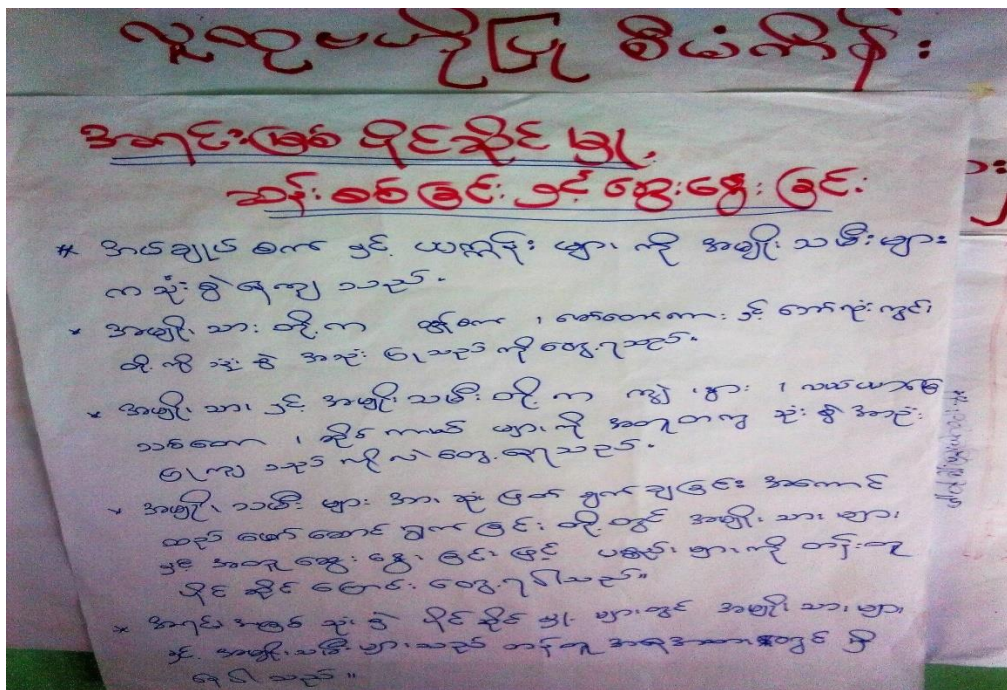 လူထုဗဟိုပြု စီမံကိန်း
အရင်းအမြစ် ပိုင်ဆိုင်မှု
ဆန်းစစ်ခြင်း နှင့် ဆွေးနွေးခြင်း
* အပ်ချုပ်စက် နှင့် ယက္ကန်းများ ကို အမျိုးသမီးများ
က သုံးစွဲရကြ သည်။
* အမျိုးသား တို့က ထွန်စက် ၊ မော်တော်ကား နှင့်
တို့ကို သုံးစွဲ အသုံးပြုသည် ကို တွေ့ရသည်။
* အမျိုးသား နှင့် အမျိုးသမီး တို့က ကျွဲ ၊ နွား ၊ လယ်ယာမြေ
သစ်တော ၊ ဆိုင်ကယ် များကို အတူတကွ သုံးစွဲ အသုံး
ပြုကြ သည် ကို လဲ တွေ့ရသည်။
* အမျိုးသမီး များ အား ဆုံးဖြတ် ချက်ချခြင်း အကောင်
ထည် ဖော်ဆောင် ရွက် ခြင်း တို့ တွင် အမျိုးသား များ
နှင့် အတူ ဆွေးနွေး ခြင်း ဖြင့် ပစ္စည်း များကို တန်းတူ
ပိုင်ဆိုင် ကြောင်း တွေ့ရပါသည်။
* အရင်းအမြစ် သုံးစွဲ ပိုင်ဆိုင်မှု များတွင် အမျိုးသား များ
နှင့် အမျိုးသမီး များသည် တန်းတူ အနေအထား တွင် ရှိ
နေပါသည်။